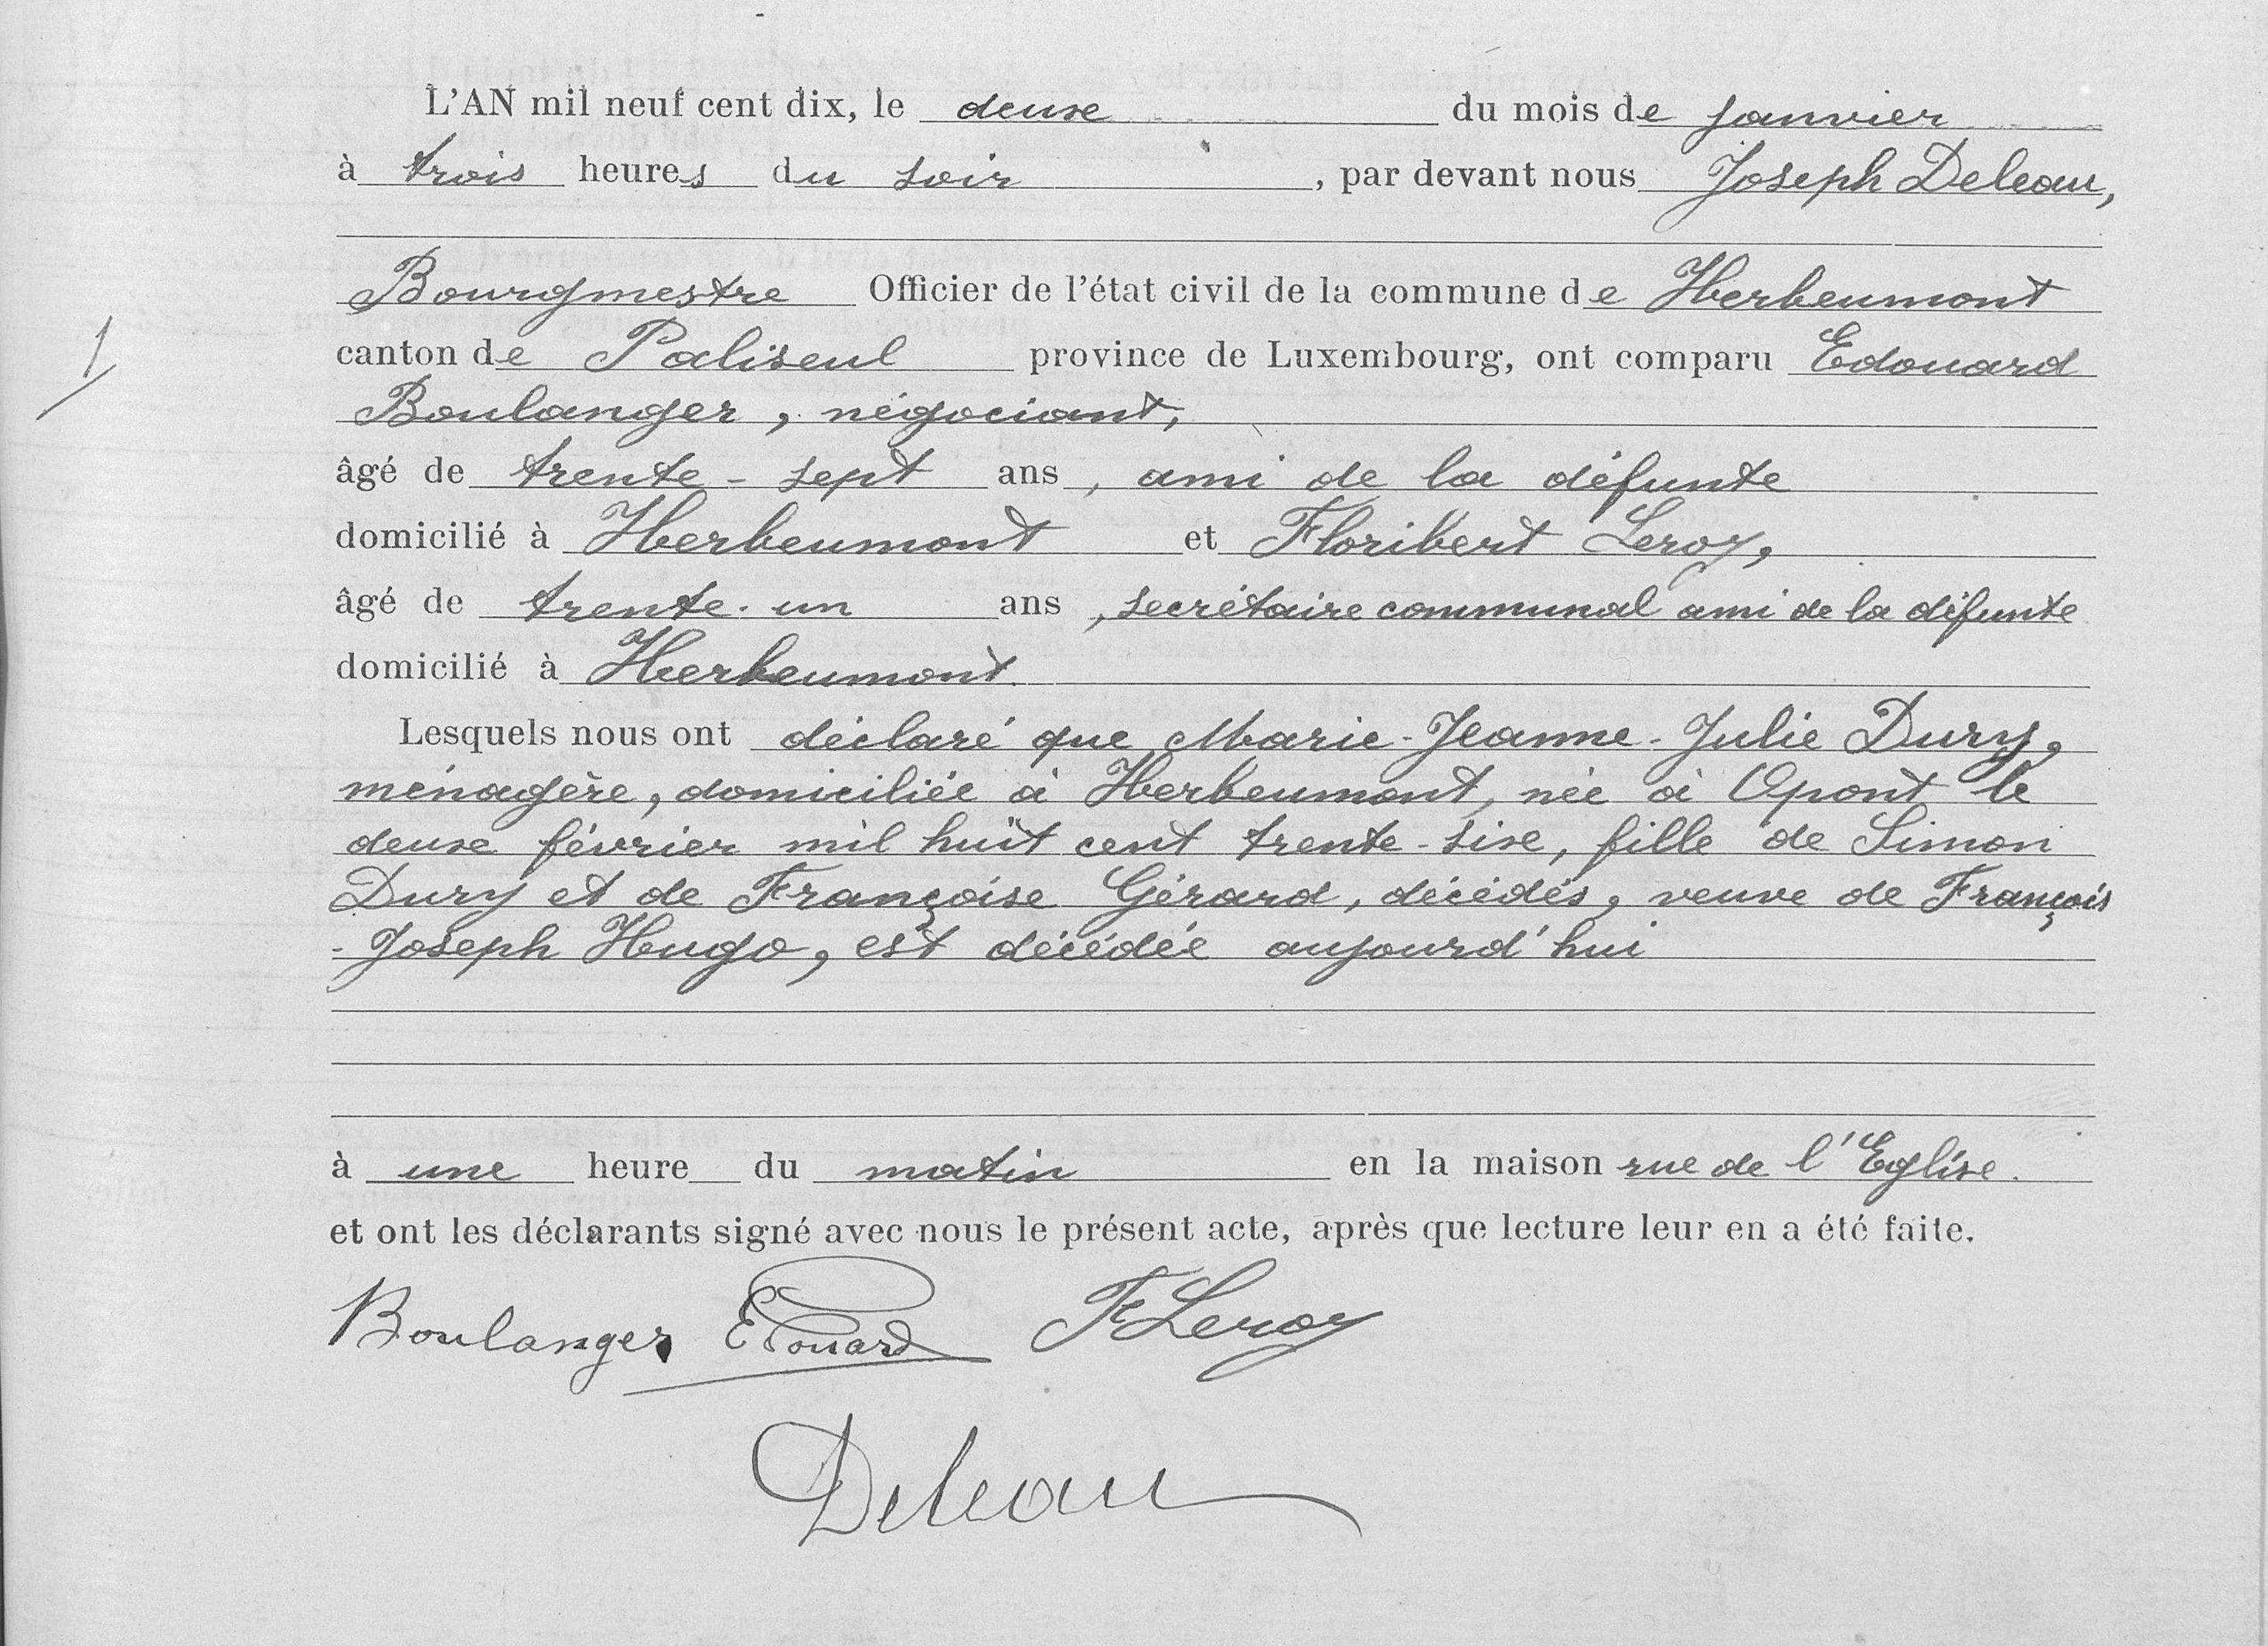 L'AN mil neuf cent dix, le deux du mois de janvier
à trois heures du soir, par devant nous Joseph Deleau,
Bourgmestre Officier de l'état civil de la commune de Herbeumont
1
canton de Paliseul province de Luxembourg, ont comparu Edouard
Boulanger, négociant,
âgé de trente-sept ans, ami de la défunte
domicilié à Herbeumont et Floribert Leroy,
âgé de trente-un ans, secrétaire communal ami de la défunte
domicilié à Herbeumont.
Lesquels nous ont déclaré que Marie-Jeanne-Julie Dury,
ménagère, domiciliée à Herbeumont, née à Opont le
deux février mil huit cent trente-six, fille de Simon
Dury et de Françoise Gérard, décédés, veuve de François
-Joseph Hugo, est décédée aujourd'hui
à une heure du matin en la maison rue de l'Eglise.
et ont les déclarants signé avec nous le présent acte, après que lecture leur en a été faite.
Boulanger Edouard FLeroy
Deleau